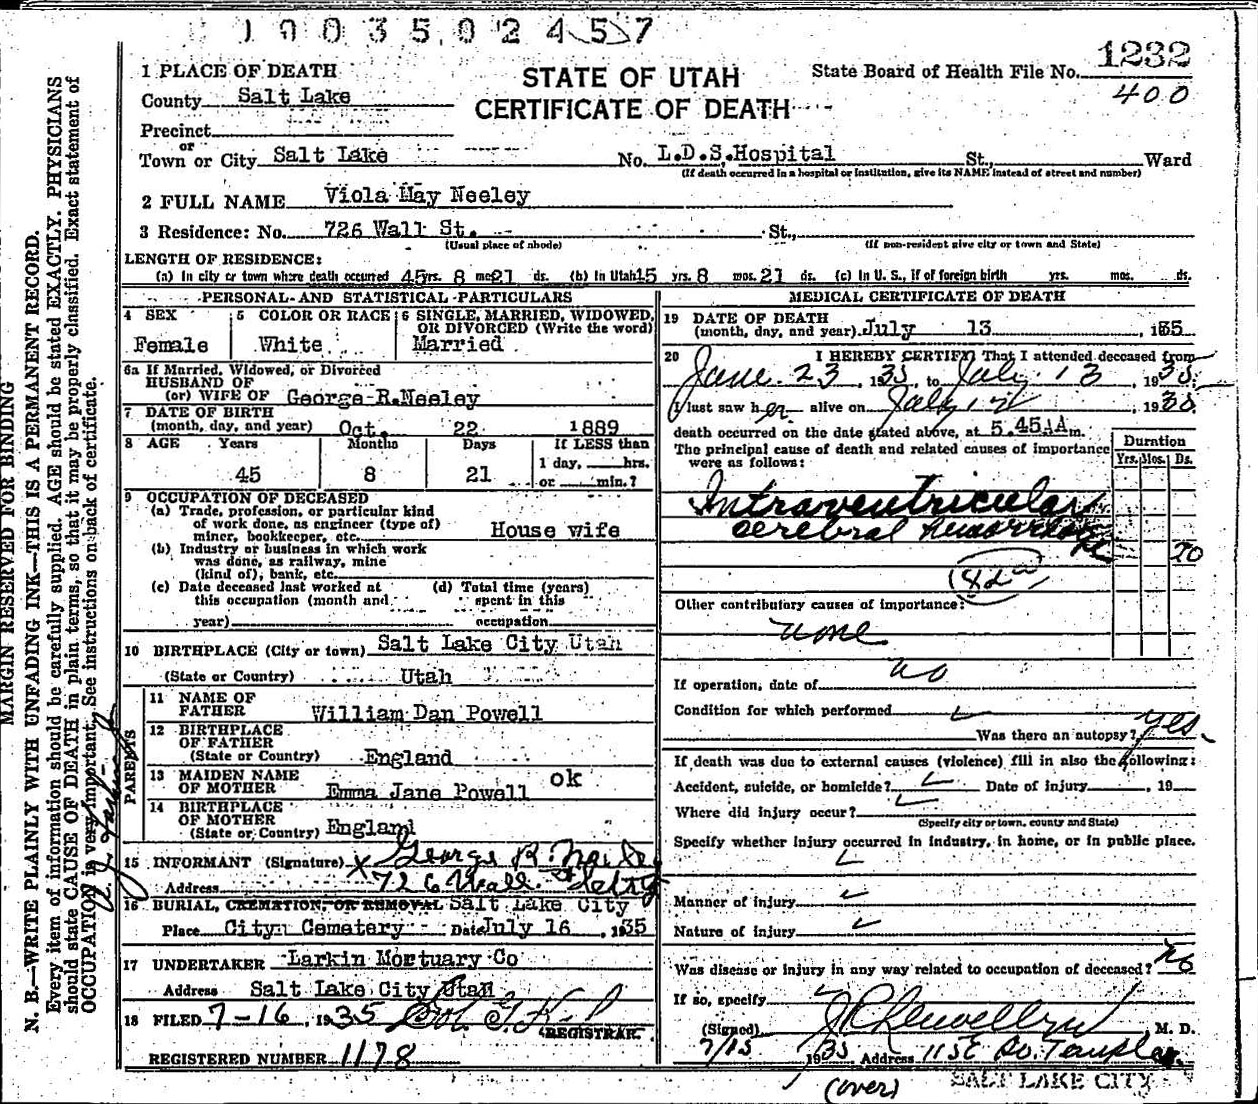 1003502457
1232
400
1 PLACE OF DEATH
STATE OF UTAH
CERTIFICATE OF DEATH
State Board of Health File No.
County Salt Lake
Precinct
or
Town or City Salt Lake No. L.D.S.Hospital St., Ward
(If death occurred in a hospital or institution, give its NAME instead of street and number)
2 FULL NAME Viola May Neeley
3 Residence: No. 726 Wall St. St.,
(Usual place of abode) (If non-resident give city or town and State)
LENGTH OF RESIDENCE:
(a) In city or town where death occurred 45 yrs. 8 mos. 21 ds. (b) In Utah 45 yrs. 8 mos. 21 ds. (c) In U. S., if of foreign birth yrs. mos. ds.
PERSONAL AND STATISTICAL PARTICULARS
4 SEX Female
5 COLOR OR RACE White
6 SINGLE, MARRIED, WIDOWED, OR DIVORCED (Write the word) Married
6a If Married, Widowed, or Divorced
HUSBAND OF
(or) WIFE OF George R.Neeley
7 DATE OF BIRTH
(month, day, and year) Oct. 22 1889
8 AGE Years Months Days If LESS than
45 8 21 1 day, hrs.
or min.?
9 OCCUPATION OF DECEASED
(a) Trade, profession, or particular kind
of work done, as engineer (type of)
miner, bookkeeper, etc. House wife
(b) Industry or business in which work
was done, as railway, mine
(kind of), bank, etc.
(c) Date deceased last worked at
this occupation (month and
year)
(d) Total time (years)
spent in this
occupation
10 BIRTHPLACE (City or town) Salt Lake City Utah
(State or Country) Utah
PARENTS
11 NAME OF
FATHER William Dan Powell
12 BIRTHPLACE
OF FATHER
(State or Country) England
13 MAIDEN NAME
OF MOTHER Emma Jane Powell ok
14 BIRTHPLACE
OF MOTHER
(State or Country) England
15 INFORMANT (Signature) X George R. Neeley
Address 726 Wall St City
16 BURIAL, CREMATION, OR REMOVAL Salt Lake City
Place City Cemetery Date July 16, 1935
17 UNDERTAKER Larkin Mortuary Co
Address Salt Lake City Utah
18 FILED 7-16, 1935
(REGISTRAR.
REGISTERED NUMBER 1178
MEDICAL CERTIFICATE OF DEATH
19 DATE OF DEATH
(month, day, and year) July 13, 1935
20 I HEREBY CERTIFY That I attended deceased from
June 23, 1935, to July 13, 1935.
I last saw her alive on July 12, 1935
death occurred on the date stated above, at 5.45 A m.
The principal cause of death and related causes of importance
were as follows:
Duration
Yrs. Mos. Ds.
Intraventricular
cerebral hemorrhage
20
82a
Other contributory causes of importance:
none
If operation, date of no
Condition for which performed
Was there an autopsy? yes.
If death was due to external causes (violence) fill in also the following:
Accident, suicide, or homicide? Date of injury , 19
Where did injury occur?
(Specify city or town, county and State)
Specify whether injury occurred in industry, in home, or in public place.
Manner of injury
Nature of injury
Was disease or injury in any way related to occupation of deceased? No
If so, specify
(Signed) J P Llewellyn, M. D.
7/15 1935 Address 115 E So. Temple
(over) SALT LAKE CITY
MARGIN RESERVED FOR BINDING
N. B.—WRITE PLAINLY WITH UNFADING INK—THIS IS A PERMANENT RECORD.
Every item of information should be carefully supplied. AGE should be stated EXACTLY. PHYSICIANS
should state CAUSE OF DEATH in plain terms, so that it may be properly classified. Exact statement of
OCCUPATION is very important. See instructions on back of certificate.